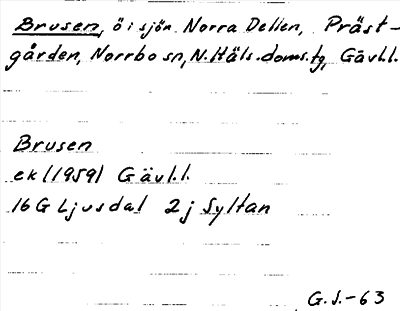 Brusen, ö i sjön Norra Dellen, Präst-
gården, Norrbo sn, N. Häls. doms.tg, Gävl.l.
Brusen
ek (1959) Gävl.l.
16 G Ljusdal 2 j Syltan
G.J.-63